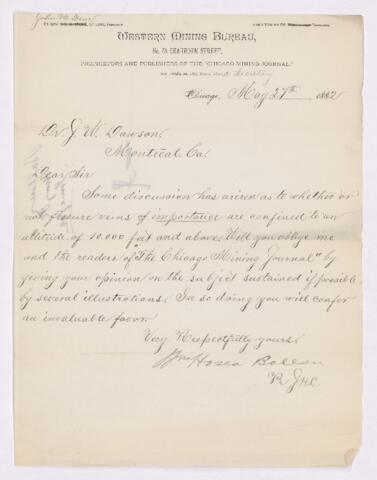 WESTERN MINING BUREAU,
No. 78 DEARBORN STREET,
PROPRIETORS AND PUBLISHERS OF THE "CHICAGO MINING JOURNAL."
Secretary
Chicago, May 27th 1882
Dr J. W. Dawson.
Montreal Ca.
Dear Sir
Some discussion has arisen as to whether or
not fissure veins of importance are confined to an
altitude of 10.000 feet and above. Will you oblige me
and the readers of "The Chicago Mining Journal" by
giving your opinion on the subject sustained if possible
by several illustrations. In so doing you will confer
an invaluable favor
Very Respectfully yours.
Wm Hosea Ballou